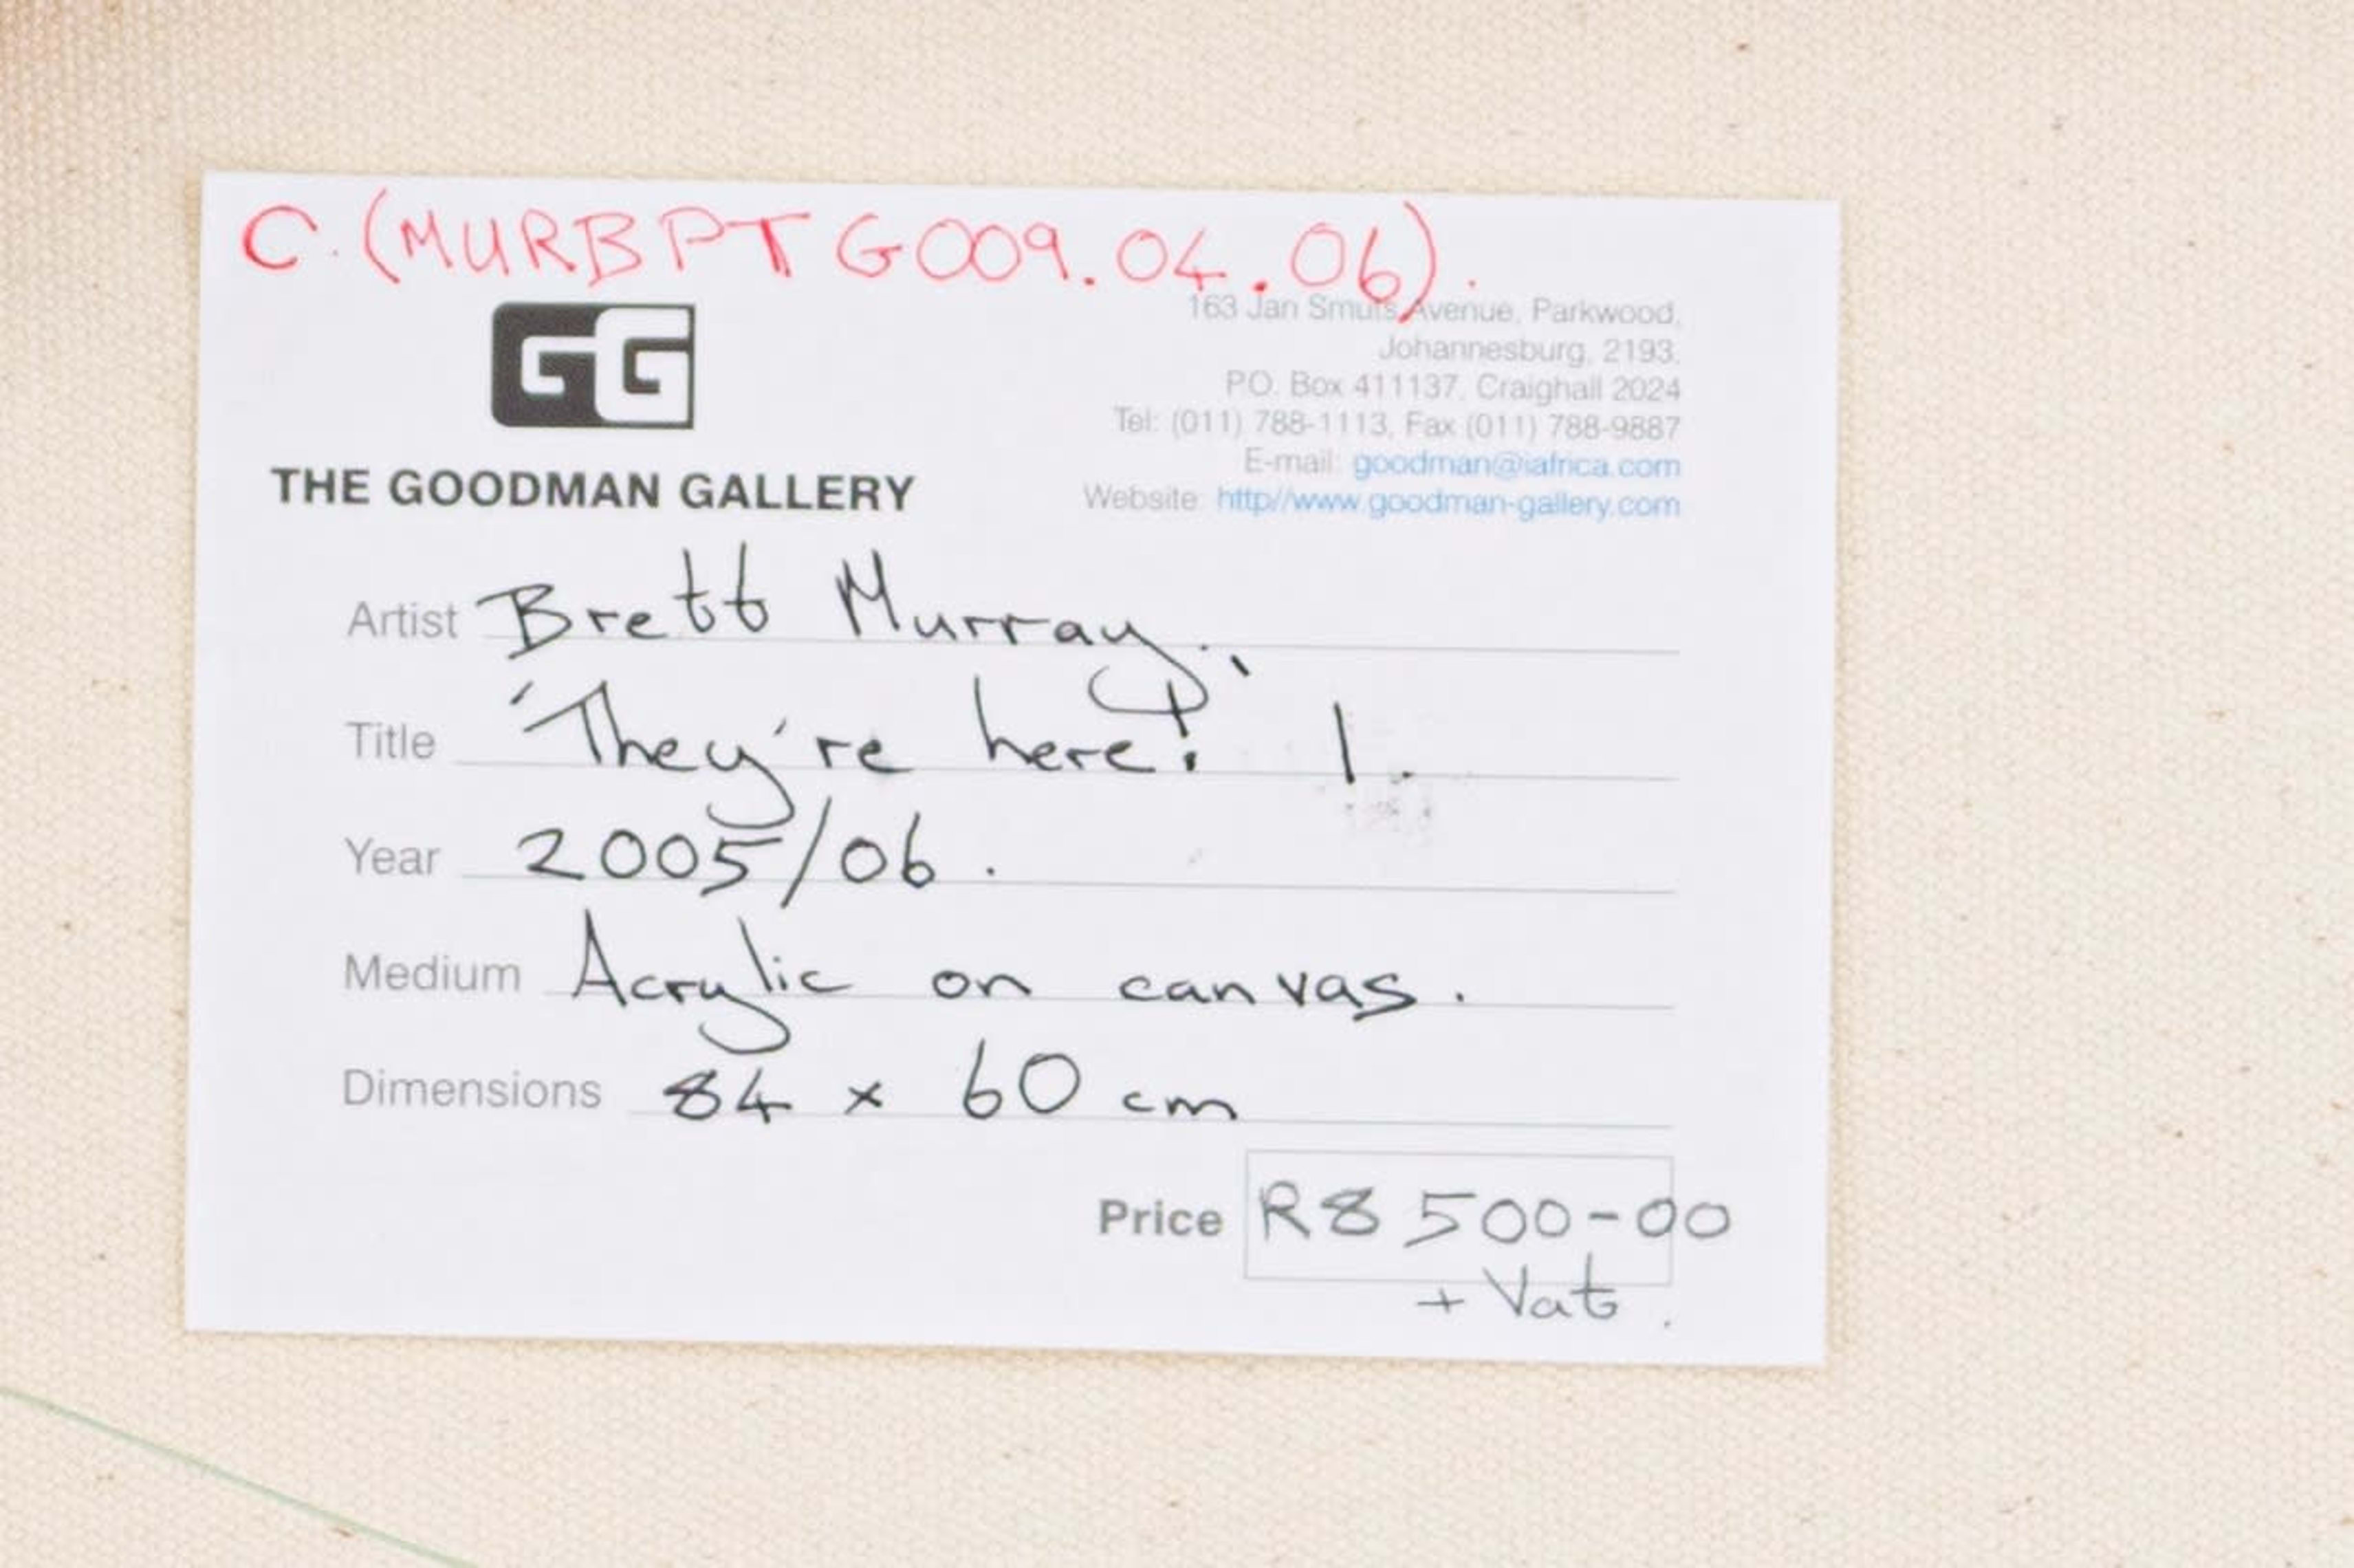 C. (MURBPTG009.04.06).
GG
THE GOODMAN GALLERY
163 Jan Smuts Avenue, Parkwood,
Johannesburg, 2193,
P.O. Box 411137, Craighall 2024
Tel: (011) 788-1113, Fax (011) 788-9887
E-mail: goodman@iafrica.com
Website: http//www.goodman-gallery.com
Artist Brett Murray.
Title 'They're here!' 1.
Year 2005/06.
Medium Acrylic on canvas.
Dimensions 84 x 60 cm
Price R8 500-00
+ Vat.